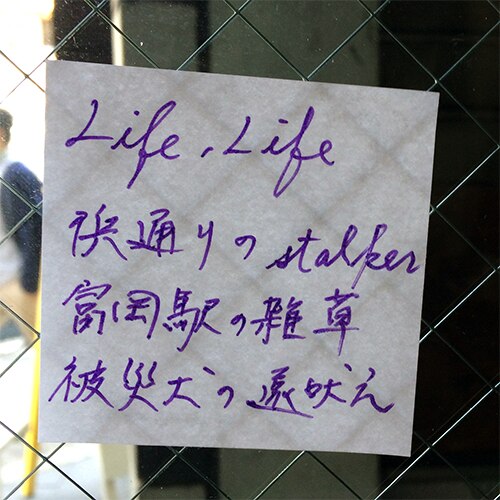 Life, Life
浜通りの stalker
富岡駅の雑草
被災犬の遠吠え